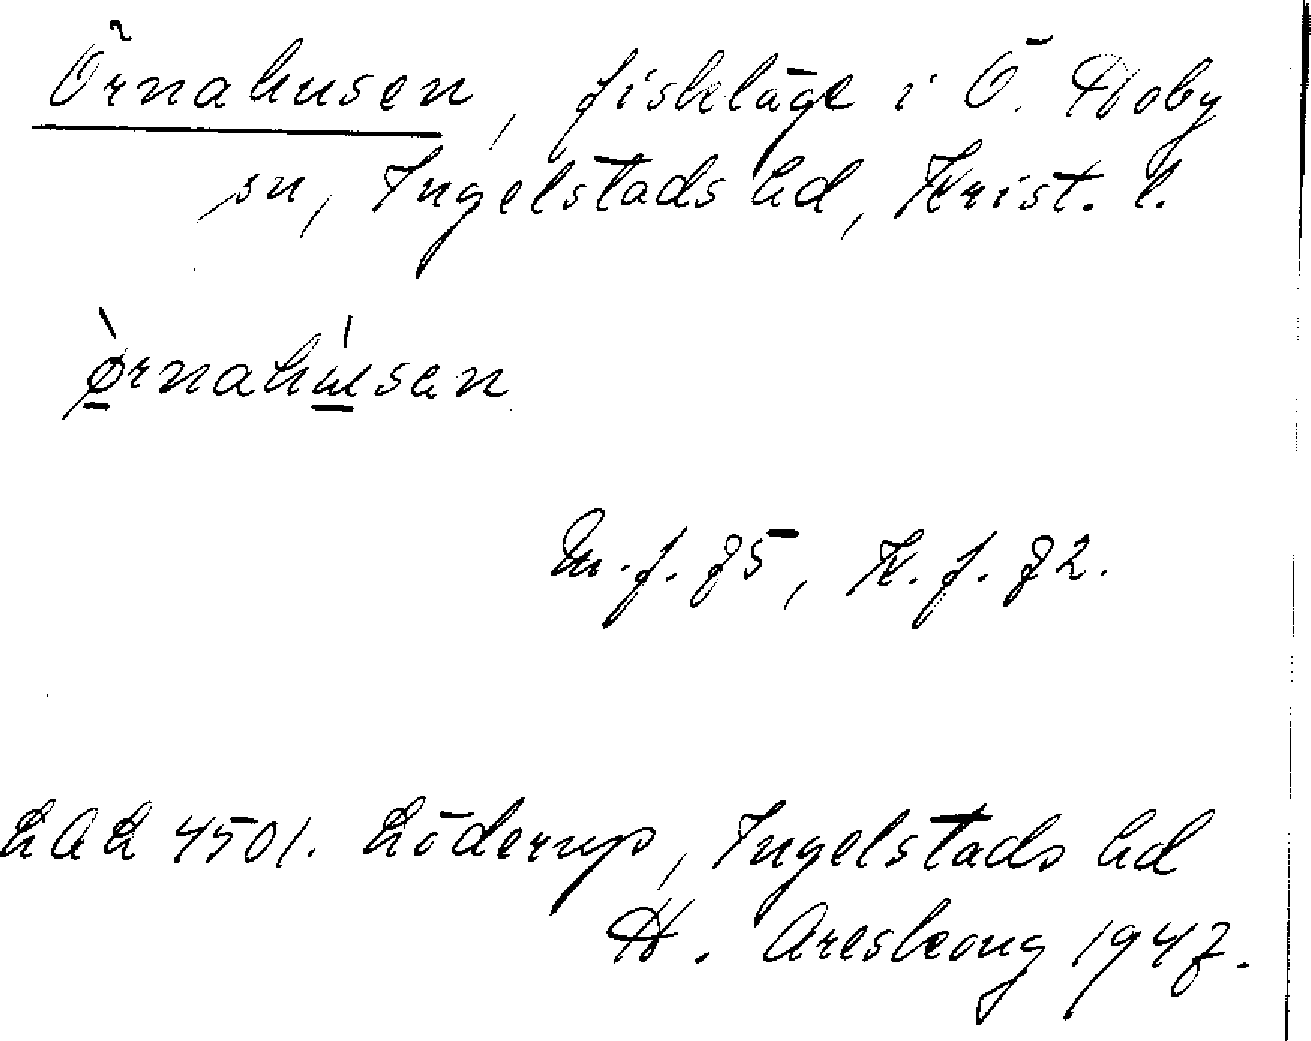 Örnahusen, fiskeläge i Ö. Hoby
sn, Ingelstads hd, Krist. l.
ø̀rnahúsen
M. f. 75, K. f. 72.
LAL 4501. Löderup, Ingelstads hd
H. Areskoug 1947.